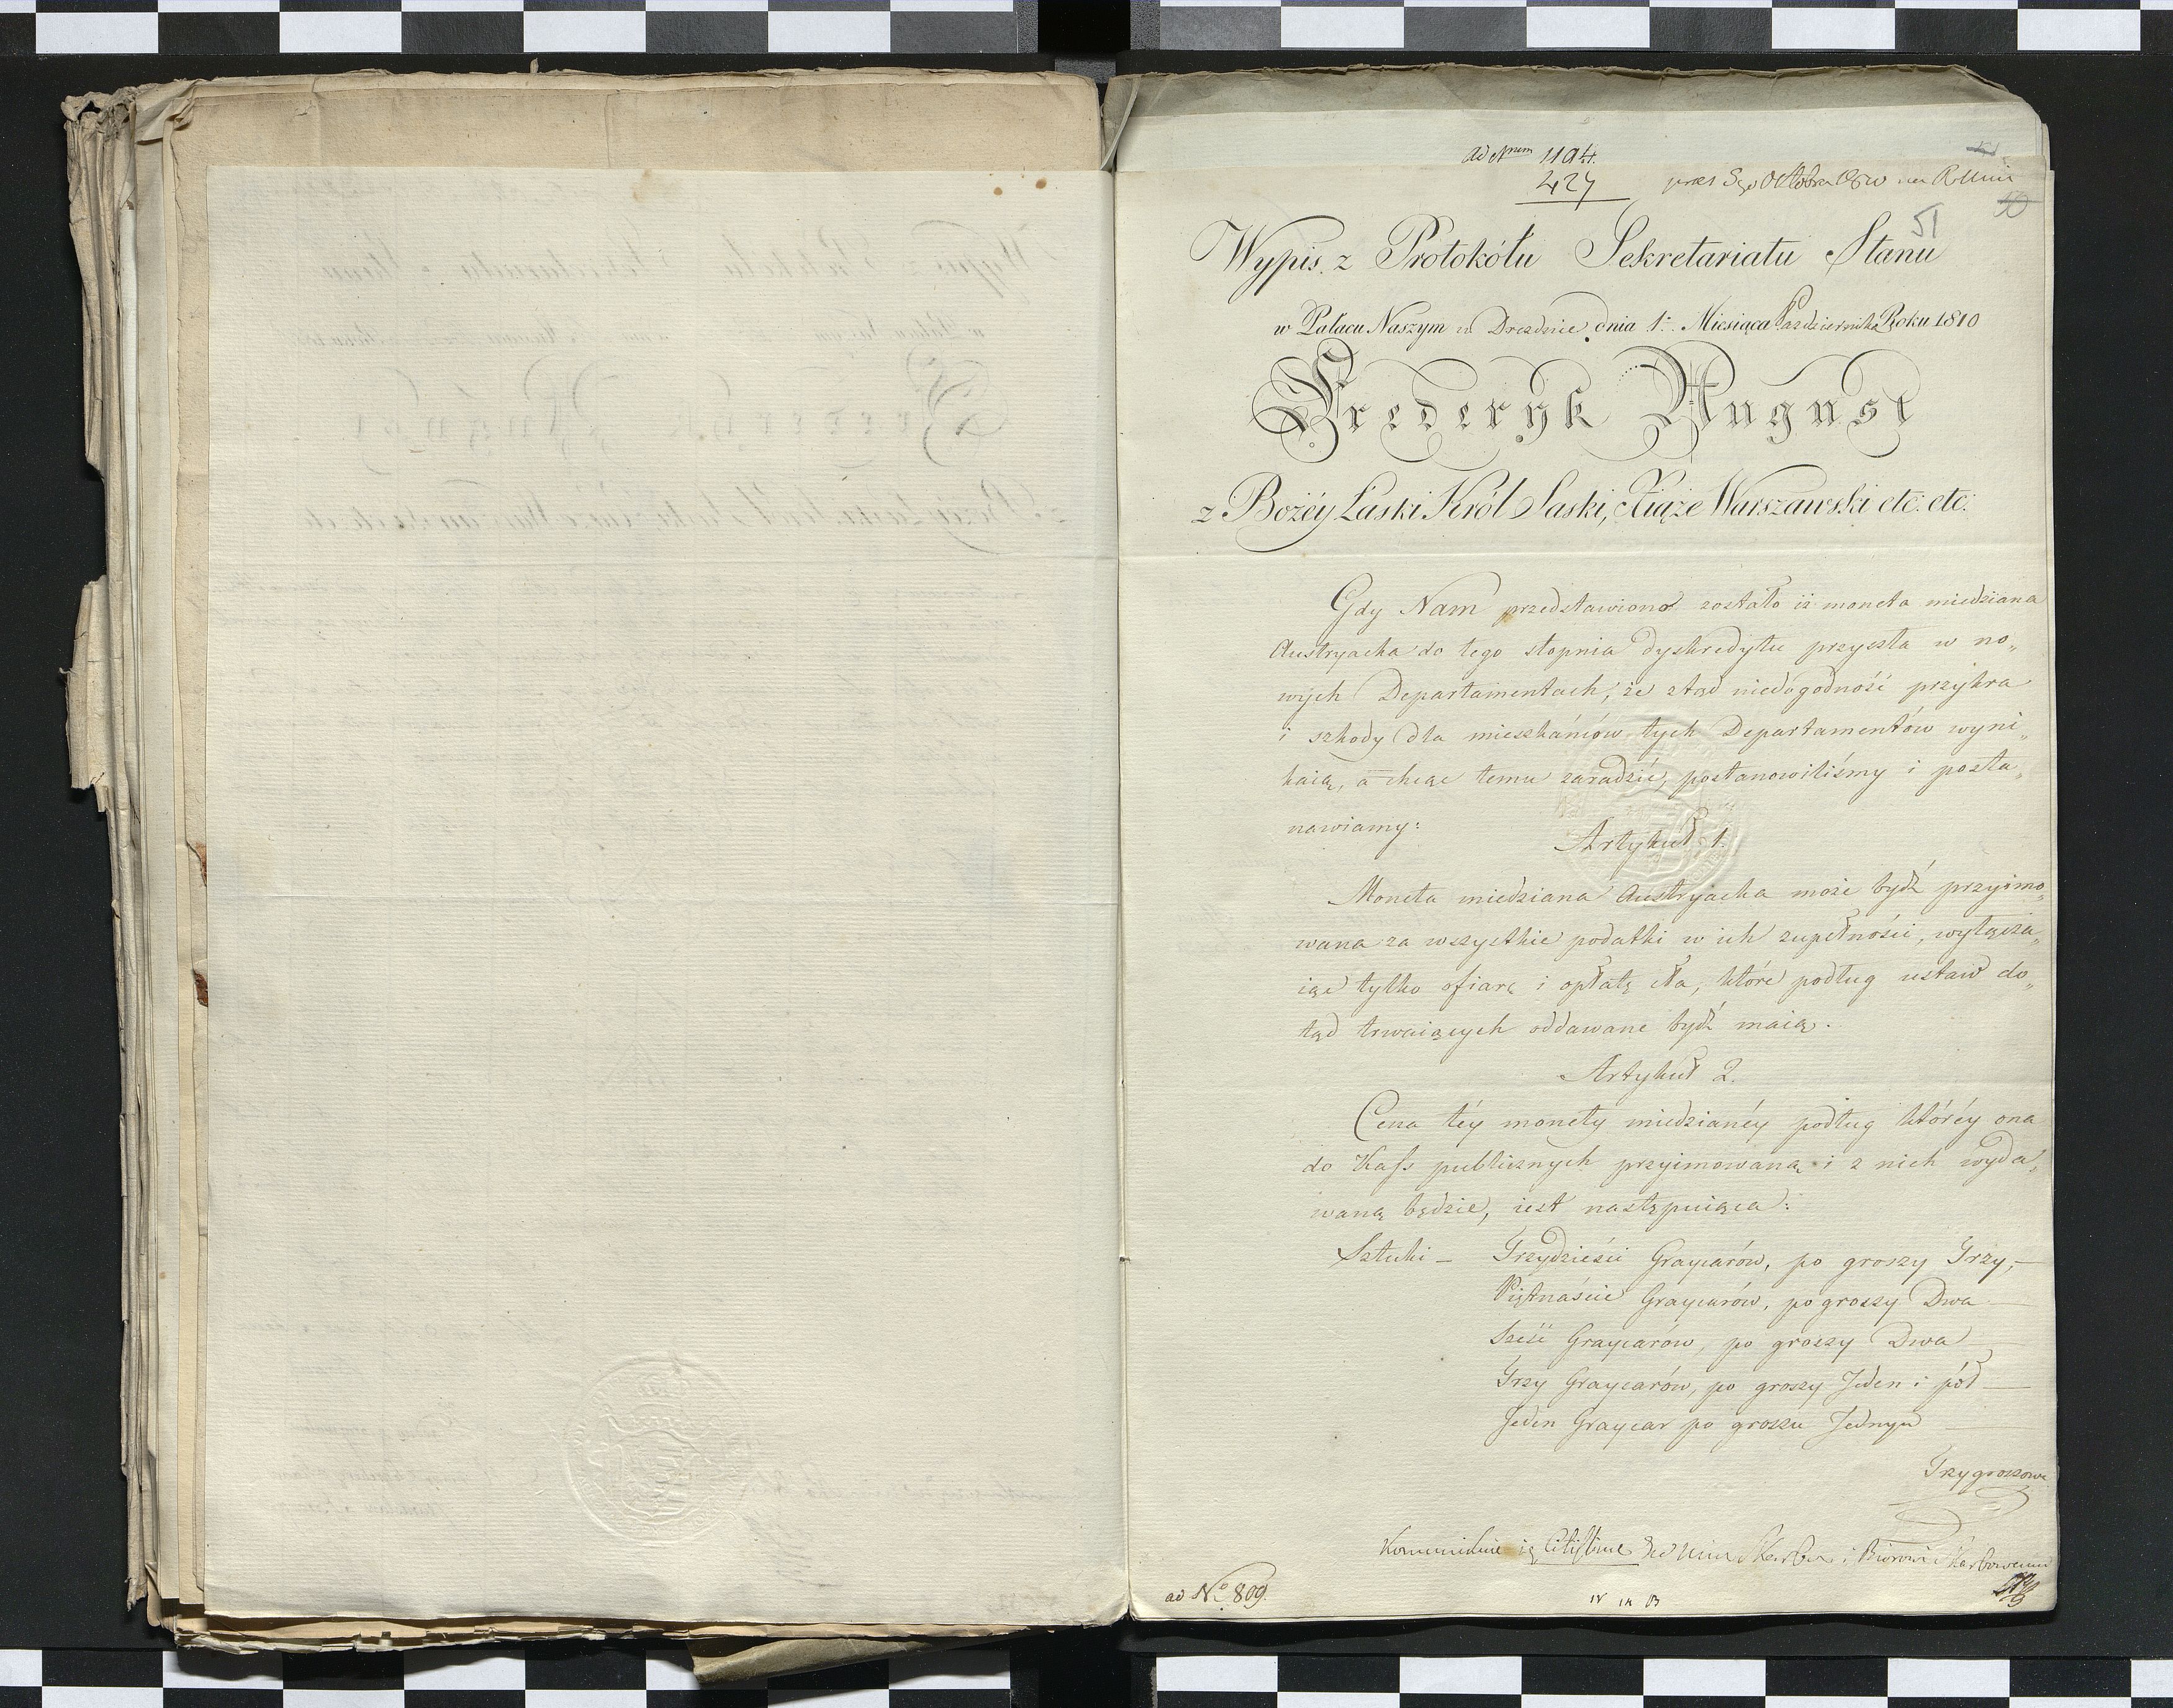 ad Num 1194.
427
51
50
Wypis z Protokółu Sekretariatu Stanu
w Pałacu Naszym w Dreźdnie dnia 1. Miesiąca Października Roku 1810
Frederyk August
z Bożéy Łaski Król Saski, Xiąże Warszawski etc: etc:
Gdy Nam przedstawiono zostało iż moneta miedziana
Austryacka do tego stopnia dyskredytu przyszła w no„
wych Departamentach, że ztąd niedogodność przykra
i szkody dla mieszkańców tych Departamentów wyni„
kaią, a chcąc temu zaradzić, postanowiliśmy i posta„
nawiamy:
Artykuł 1.
Moneta miedziana Austryacka może bydź przyimo„
wana za wszystkie podatki w ich zupełności, wyłącza„
iąc tylko ofiarę i opłatę cła, które podług ustaw do„
tąd trwaiących oddawane bydź maią.
Artykuł 2.
Cena téy monety miedzianéy podług któréy ona
do Kass publicznych przyimowaną i z nich wyda„
waną będzie, iest następuiąca:
Sztuki — Trzydzieści Graycarów, po groszy Trzy, —
Piętnaście Graycarów, po groszy Dwa —
Sześć Graycarów, po groszy Dwa —
Trzy Graycarów, po groszy Jeden i pół —
Jeden Graycar po groszu Jednym —
Trzygroszowe
ad No. 809.